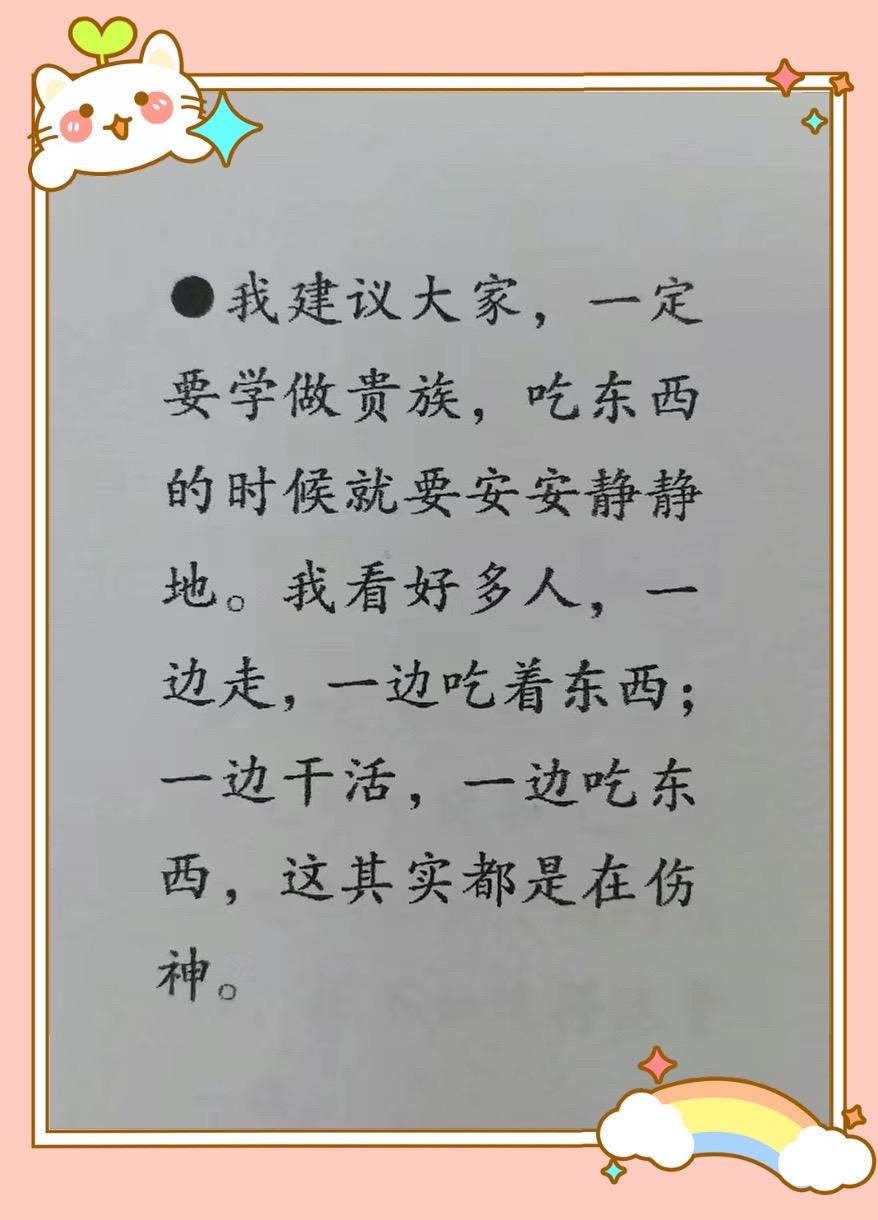 ●我建议大家，一定
要学做贵族，吃东西
的时候就要安安静静
地。我看好多人，一
边走，一边吃着东西；
一边干活，一边吃东
西，这其实都是在伤
神。